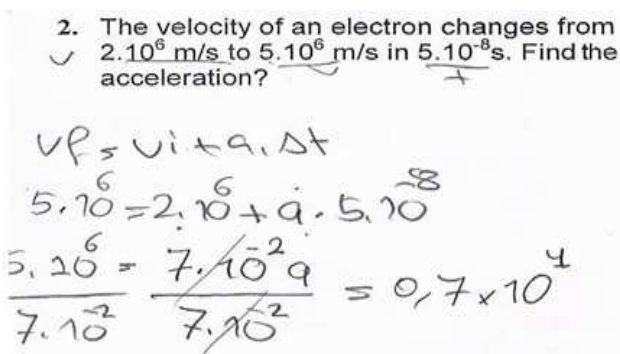 2. The velocity of an electron changes from
2.10⁶ m/s to 5.10⁶ m/s in 5.10⁻⁸s. Find the
acceleration?
vf = vi + a. Δt
5.10⁶ = 2.10⁶ + a. 5.10⁻⁸
5.10⁶ / 7.10⁻² = 7.10⁻² a / 7.10⁻² = 0,7 x 10⁴